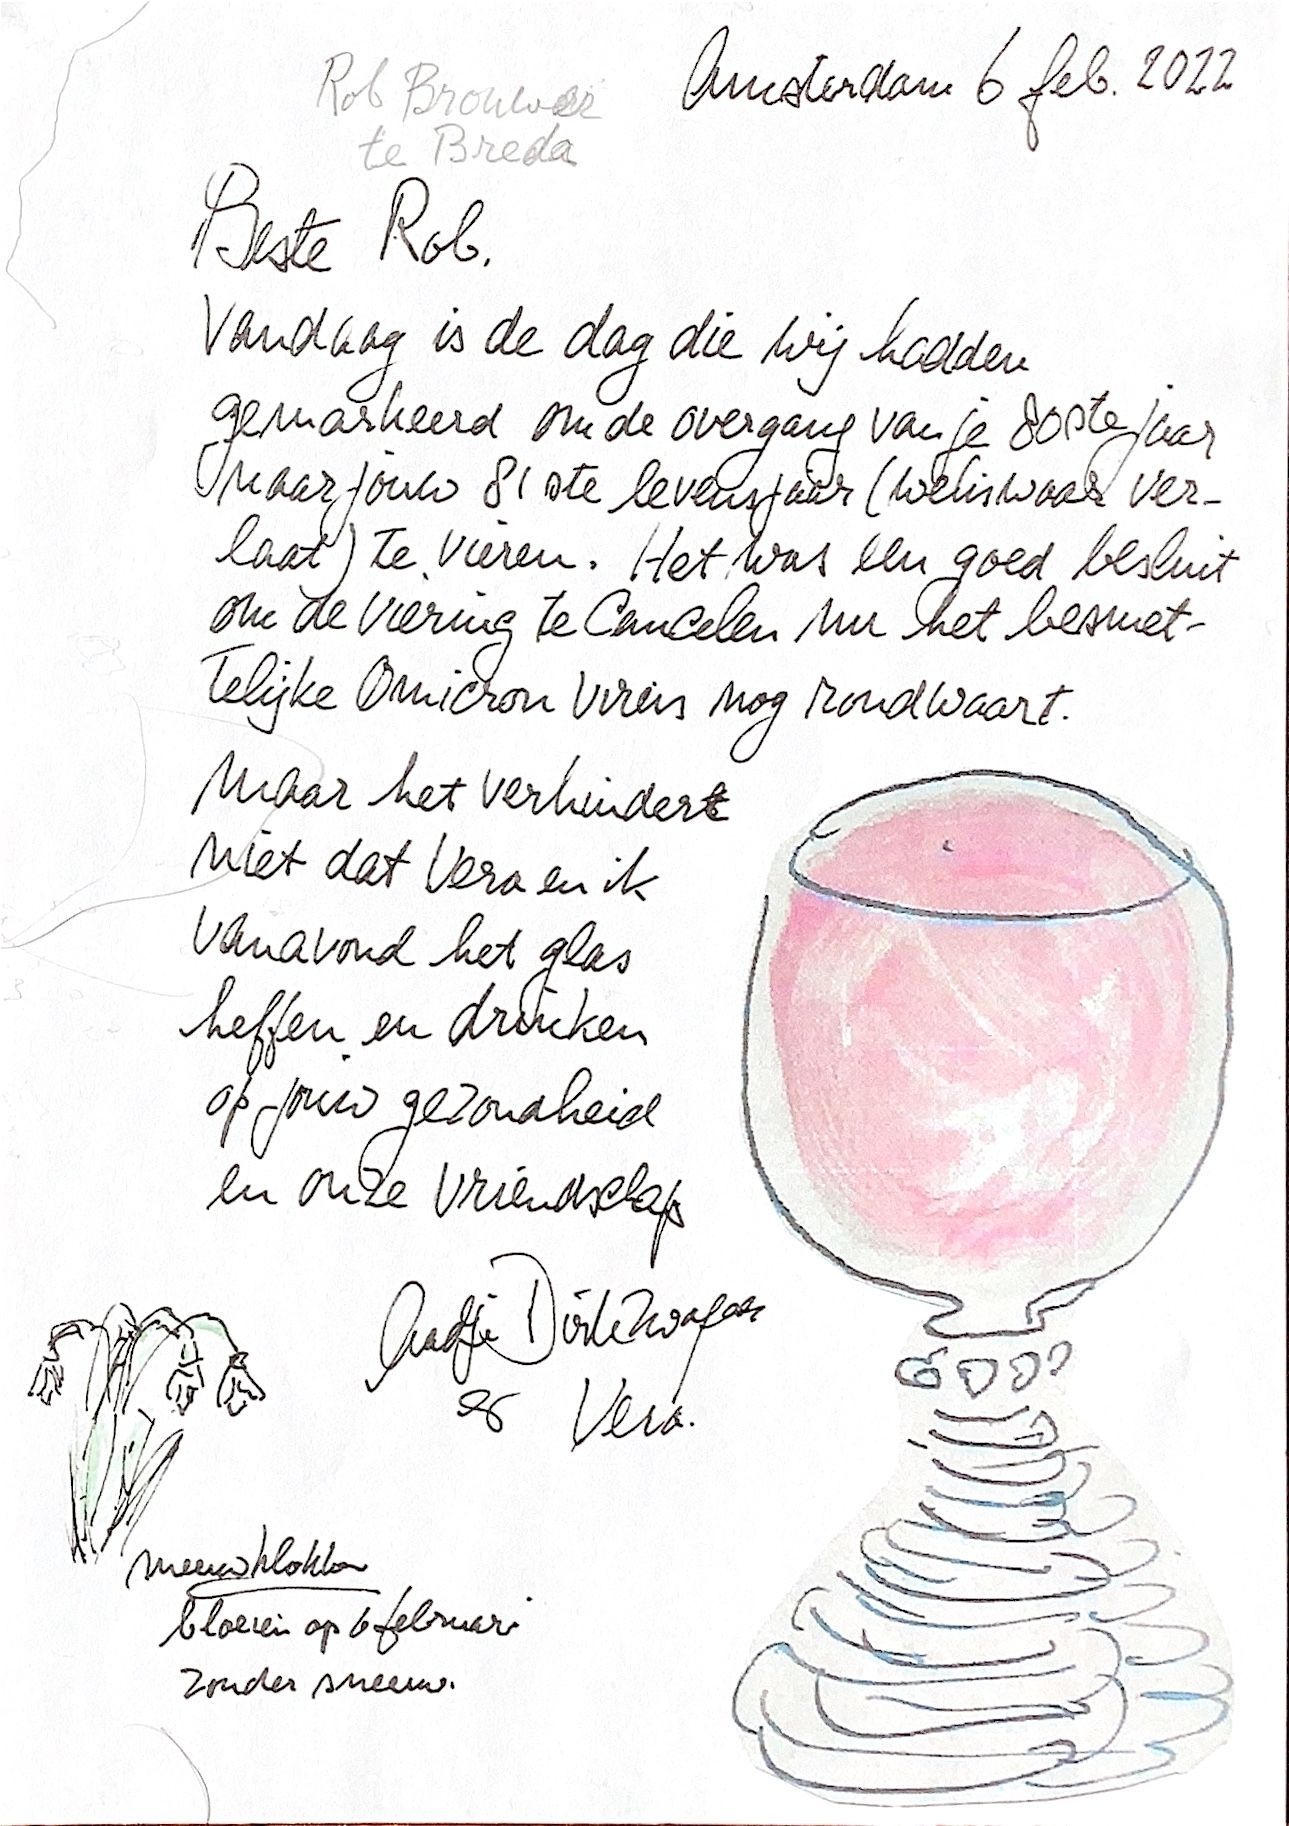 Amsterdam 6 feb. 2022
Rob Brouwer
te Breda
Beste Rob.
Vandaag is de dag die wij hadden
gemarkeerd om de overgang van je 80ste jaar
naar jouw 81ste levensjaar (weliswaar ver-
laat) te vieren. Het was een goed besluit
om de viering te cancelen nu het besmet-
telijke Omicron virus nog rondwaart.
Maar het verhindert
niet dat Vera en ik
vanavond het glas
heffen en drinken
op jouw gezondheid
en onze vriendschap
Aadje Dirkzwager
& Vera.
sneeuwklokken
bloeien op 6 februari
zonder sneeuw.